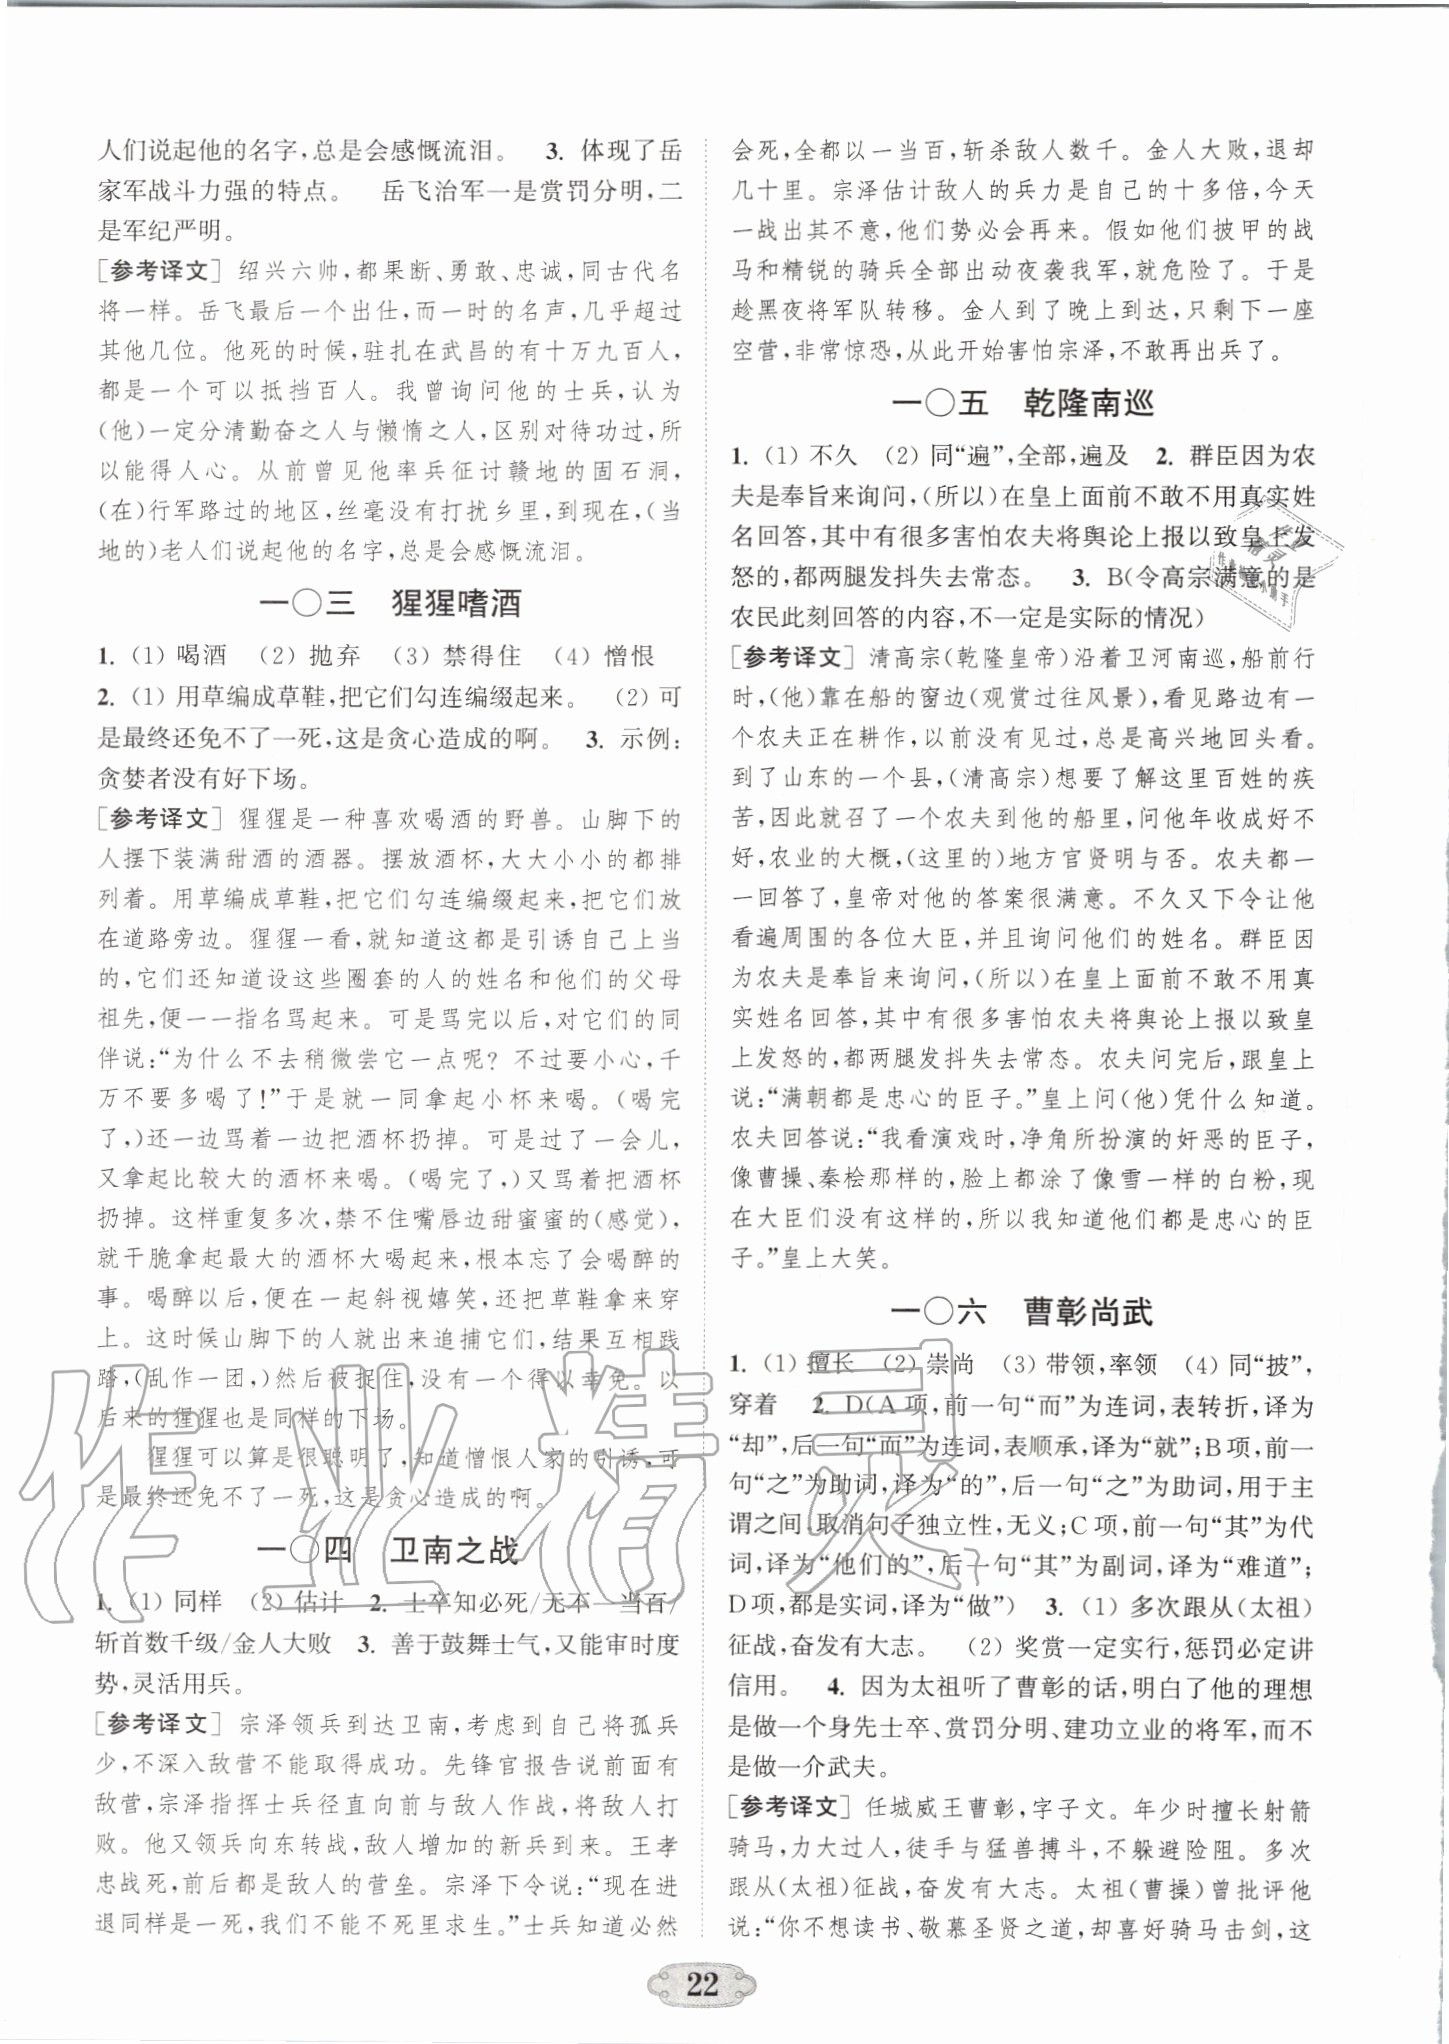 人们说起他的名字,总是会感慨流泪。 3. 体现了岳
家军战斗力强的特点。 岳飞治军一是赏罚分明,二
是军纪严明。
[参考译文] 绍兴六帅,都果断、勇敢、忠诚,同古代名
将一样。岳飞最后一个出仕,而一时的名声,几乎超过
其他几位。他死的时候,驻扎在武昌的有十万九百人,
都是一个可以抵挡百人。我曾询问他的士兵,认为
(他)一定分清勤奋之人与懒惰之人,区别对待功过,所
以能得人心。从前曾见他率兵征讨赣地的固石洞,
(在)行军路过的地区,丝毫没有打扰乡里,到现在,(当
地的)老人们说起他的名字,总是会感慨流泪。
一〇三 猩猩嗜酒
1. (1) 喝酒 (2) 抛弃 (3) 禁得住 (4) 憎恨
2. (1) 用草编成草鞋,把它们勾连编缀起来。 (2) 可
是最终还免不了一死,这是贪心造成的啊。 3. 示例:
贪婪者没有好下场。
[参考译文] 猩猩是一种喜欢喝酒的野兽。山脚下的
人摆下装满甜酒的酒器。摆放酒杯,大大小小的都排
列着。用草编成草鞋,把它们勾连编缀起来,把它们放
在道路旁边。猩猩一看,就知道这都是引诱自己上当
的,它们还知道设这些圈套的人的姓名和他们的父母
祖先,便一一指名骂起来。可是骂完以后,对它们的同
伴说:“为什么不去稍微尝它一点呢? 不过要小心,千
万不要多喝了!”于是就一同拿起小杯来喝。(喝完
了,)还一边骂着一边把酒杯扔掉。可是过了一会儿,
又拿起比较大的酒杯来喝。(喝完了,)又骂着把酒杯
扔掉。这样重复多次,禁不住嘴唇边甜蜜蜜的(感觉),
就干脆拿起最大的酒杯大喝起来,根本忘了会喝醉的
事。喝醉以后,便在一起斜视嬉笑,还把草鞋拿来穿
上。这时候山脚下的人就出来追捕它们,结果互相践
踏,(乱作一团,)然后被捉住,没有一个得以幸免。以
后来的猩猩也是同样的下场。
猩猩可以算是很聪明了,知道憎恨人家的引诱,可
是最终还免不了一死,这是贪心造成的啊。
一〇四 卫南之战
1. (1) 同样 (2) 估计 2. 士卒知必死/无不一当百/
斩首数千级/金人大败 3. 善于鼓舞士气,又能审时度
势,灵活用兵。
[参考译文] 宗泽领兵到达卫南,考虑到自己将孤兵
少,不深入敌营不能取得成功。先锋官报告说前面有
敌营,宗泽指挥士兵径直向前与敌人作战,将敌人打
败。他又领兵向东转战,敌人增加的新兵到来。王孝
忠战死,前后都是敌人的营垒。宗泽下令说:“现在进
退同样是一死,我们不能不死里求生。”士兵知道必然
会死,全都以一当百,斩杀敌人数千。金人大败,退却
几十里。宗泽估计敌人的兵力是自己的十多倍,今天
一战出其不意,他们势必会再来。假如他们披甲的战
马和精锐的骑兵全部出动夜袭我军,就危险了。于是
趁黑夜将军队转移。金人到了晚上到达,只剩下一座
空营,非常惊恐,从此开始害怕宗泽,不敢再出兵了。
一〇五 乾隆南巡
1. (1) 不久 (2) 同“遍”,全部,遍及 2. 群臣因为农
夫是奉旨来询问,(所以)在皇上面前不敢不用真实姓
名回答,其中有很多害怕农夫将舆论上报以致皇上发
怒的,都两腿发抖失去常态。 3. B(令高宗满意的是
农民此刻回答的内容,不一定是实际的情况)
[参考译文] 清高宗(乾隆皇帝)沿着卫河南巡,船前行
时,(他)靠在船的窗边(观赏过往风景),看见路边有一
个农夫正在耕作,以前没有见过,总是高兴地回头看。
到了山东的一个县,(清高宗)想要了解这里百姓的疾
苦,因此就召了一个农夫到他的船里,问他年收成好不
好,农业的大概,(这里的)地方官贤明与否。农夫都一
一回答了,皇帝对他的答案很满意。不久又下令让他
看遍周围的各位大臣,并且询问他们的姓名。群臣因
为农夫是奉旨来询问,(所以)在皇上面前不敢不用真
实姓名回答,其中有很多害怕农夫将舆论上报以致皇
上发怒的,都两腿发抖失去常态。农夫问完后,跟皇上
说:“满朝都是忠心的臣子。”皇上问(他)凭什么知道。
农夫回答说:“我看演戏时,净角所扮演的奸恶的臣子,
像曹操、秦桧那样的,脸上都涂了像雪一样的白粉,现
在大臣们没有这样的,所以我知道他们都是忠心的臣
子。”皇上大笑。
一〇六 曹彰尚武
1. (1) 擅长 (2) 崇尚 (3) 带领,率领 (4) 同“披”,
穿着 2. D(A项,前一句“而”为连词,表转折,译为
“却”,后一句“而”为连词,表顺承,译为“就”;B项,前一
句“之”为助词,译为“的”,后一句“之”为助词,用于主
谓之间,取消句子独立性,无义;C项,前一句“其”为代
词,译为“他们的”,后一句“其”为副词,译为“难道”;
D项,都是实词,译为“做”) 3. (1) 多次跟从(太祖)
征战,奋发有大志。 (2) 奖赏一定实行,惩罚必定讲
信用。 4. 因为太祖听了曹彰的话,明白了他的理想
是做一个身先士卒、赏罚分明、建功立业的将军,而不
是做一介武夫。
[参考译文] 任城威王曹彰,字子文。年少时擅长射箭
骑马,力大过人,徒手与猛兽搏斗,不躲避险阻。多次
跟从(太祖)征战,奋发有大志。太祖(曹操)曾批评他
说:“你不想读书、敬慕圣贤之道,却喜好骑马击剑,这
22
作业精灵